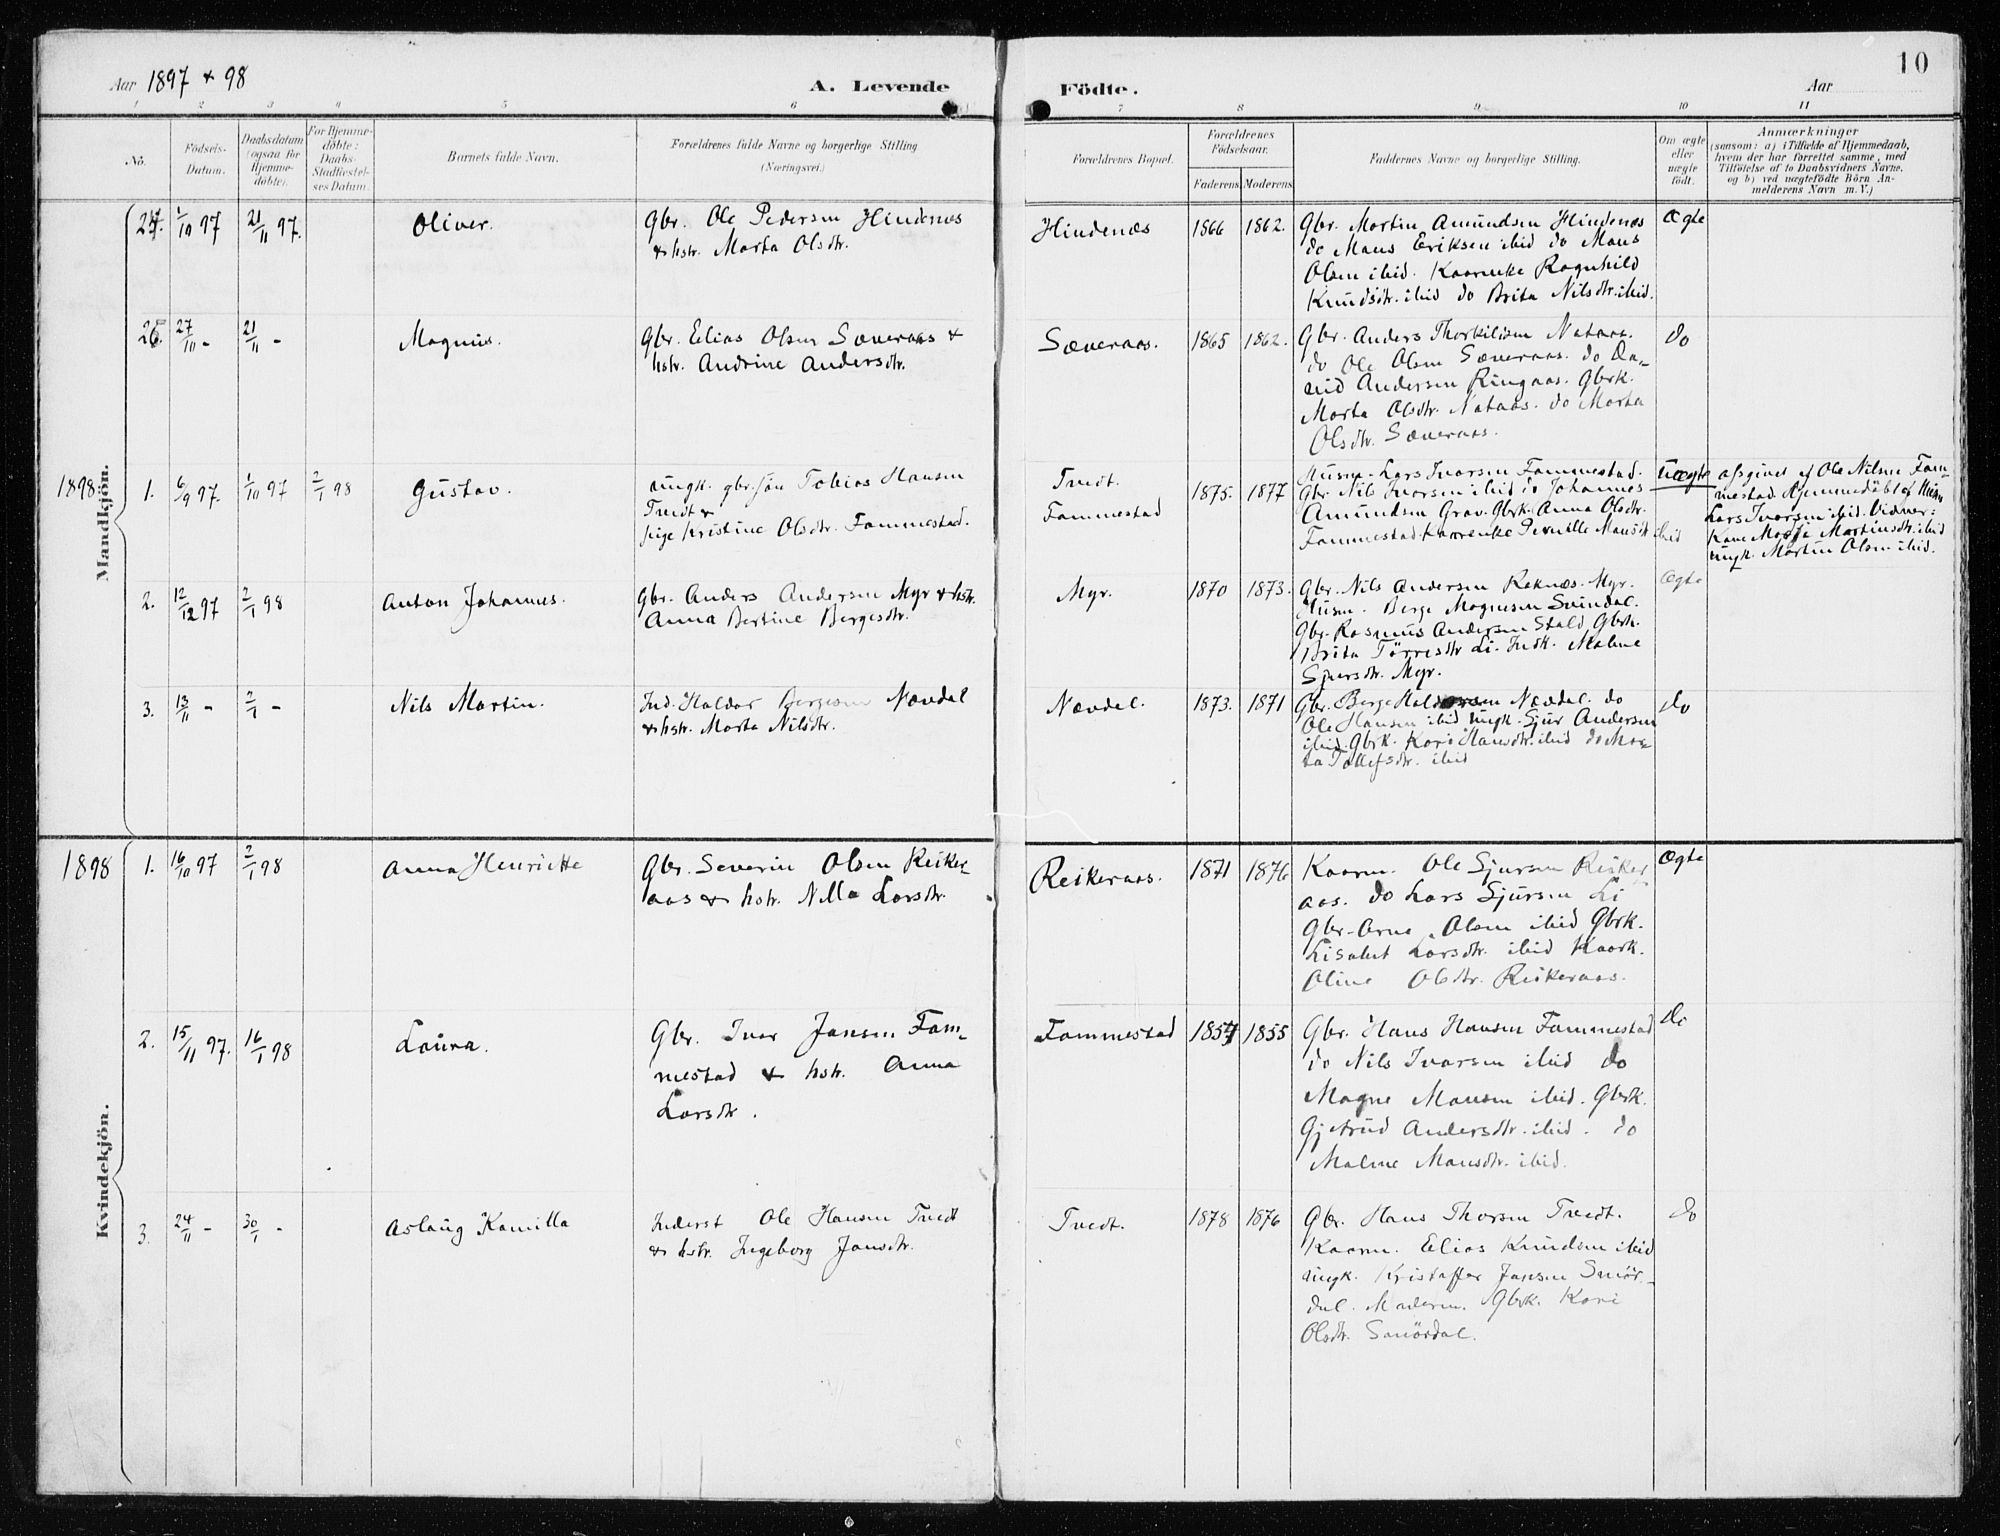 10
Aar 1897 + 98
A. Levende
Födte.
Aar
1 2 3 4 5 6 7 8 9 10 11
No.
Födsels-
Datum.
Daabsdatum
(ogsaa for
Hjemme-
döbte).
For Hjemme-
döbte:
Daabs-
Stadfæstel-
ses Datum.
Barnets fulde Navn.
Forældrenes fulde Navne og borgerlige Stilling
(Næringsvei.)
Forældrenes Bopæl.
Forældrenes
Födselsaar.
Faderens
Moderens
Faddernes Navne og borgerlige Stilling.
Om ægte
eller
uægte
födt.
Anmærkninger
(saasom: a) i Tilfælde af Hjemmedaab,
hvem der har forrettet samme, med
Tilföielse af to Daabsvidners Navne,
og b) ved uægtefödte Börn An-
melderens Navn m. V.)
Mandkjön.
1/10 97
21/11 97.
Oliver.
Gbr. Ole Pedersen Hindenes
& hstr. Marta Olsdtr.
Hindenæs
1866
1862.
Gbr. Martin Amundsen Hindenæs
do Mans Eriksen ibid do Mans
Olsen ibid. Kaarmke Ragnhild
Knudsdtr. ibid do Brita Nilsdtr. ibid.
Ægte
26
27/10 -
21/11 -
Magnus.
Gbr. Elias Olsen Sæveraas &
hstr. Andrine Andersdtr.
Sæveraas.
1865
1862.
Gbr. Anders Thorkilsen Nataas.
do Ole Olsen Sæveraas. do Da-
vid Andersen Ringaas. Gbrk.
Marta Olsdtr. Nataas. do Marta
Olsdtr. Sæveraas.
do
1898
1.
6/9 97.
1/10 97
2/1 98
Gustav.
ungk. gbr.søn Tobias Hansen
Tvedt &
pige Kristine Olsdtr. Fammestad.
Tvedt.
Fammestad
1875.
1877
Husm. Lars Ivarsen Fammestad.
Gbr. Nils Ivarsen ibid do Johannes
Amundsen Grav. Gbrk. Anna Olsdtr.
Fammestad. Karrenke Pernille Mansdtr ibid
Uægte
afgivet af Ole Nilsen Fam-
mestad. Hjemmedøbt af Husm
Lars Ivarsen ibid. Vidner:
Kone Marja Martinsdtr. ibid
ungk. Martin Olsen ibid.
2.
12/12 97
2/1 98
Anton Johannes.
Gbr. Anders Andersen Myr & hstr.
Anna Bertine Bergesdtr.
Myr.
1870
1873.
Gbr. Nils Andersen Reknæs. Myr.
Husm. Berge Magnesen Svindal.
Gbr. Rasmus Andersen Stald Gbrk.
Brita Tørresdtr Li. Indk. Malene
Sjursdtr. Myr.
Ægte
3.
13/11 -
2/1 -
Nils Martin.
Ind. Haldor Bergesen Nævdal
& hstr. Marta Nilsdtr.
Nævdal.
1873.
1871
Gbr. Berge Haldorsen Nævdal. do
Ole Hansen ibid ungk. Sjur Andersen
ibid. Gbrk. Kari Hansdtr. ibid do Mar-
ta Tollefsdtr. ibid
do
Kvindekjön.
1898
1.
16/10 97
2/1 98
Anna Henriette
Gbr. Severin Olsen Reiker-
aas & hstr. Nilla Larsdtr.
Reikeraas.
1871
1876
Kaarm. Ole Sjursen Reiker-
aas. do Lars Sjursen Li
Gbr. Arne Olsen ibid Gbrk.
Lisabet Larsdtr. ibid Kaark.
Oline Olsdtr. Reikeraas.
Ægte
2.
15/11 97.
16/1 98
Laura.
Gbr. Ivar Jansen Fam-
mestad & hstr. Anna
Larsdtr.
Fammestad
1855
Gbr. Hans Hansen Fammestad
do Nils Ivarsen ibid do
Magne Mansen ibid. Gbrk.
Gjertrud Andersdtr. ibid. do
Malene Mansdtr. ibid.
Do
3.
24/11 -
30/1 -
Aslaug Kamilla
Inderst Ole Hansen Tvedt
& hstr. Ingeborg Jansdtr.
Tvedt.
1878
1876
Gbr. Hans Thorsen Tvedt.
Kaarm. Elias Knudsen ibid
ungk. Kristoffer Jansen Smør-
dal. Gbrk. Kari
Olsdtr. Smørdal.
do